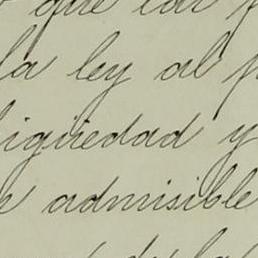 que las
la ley al p
igüedad y
e admisible